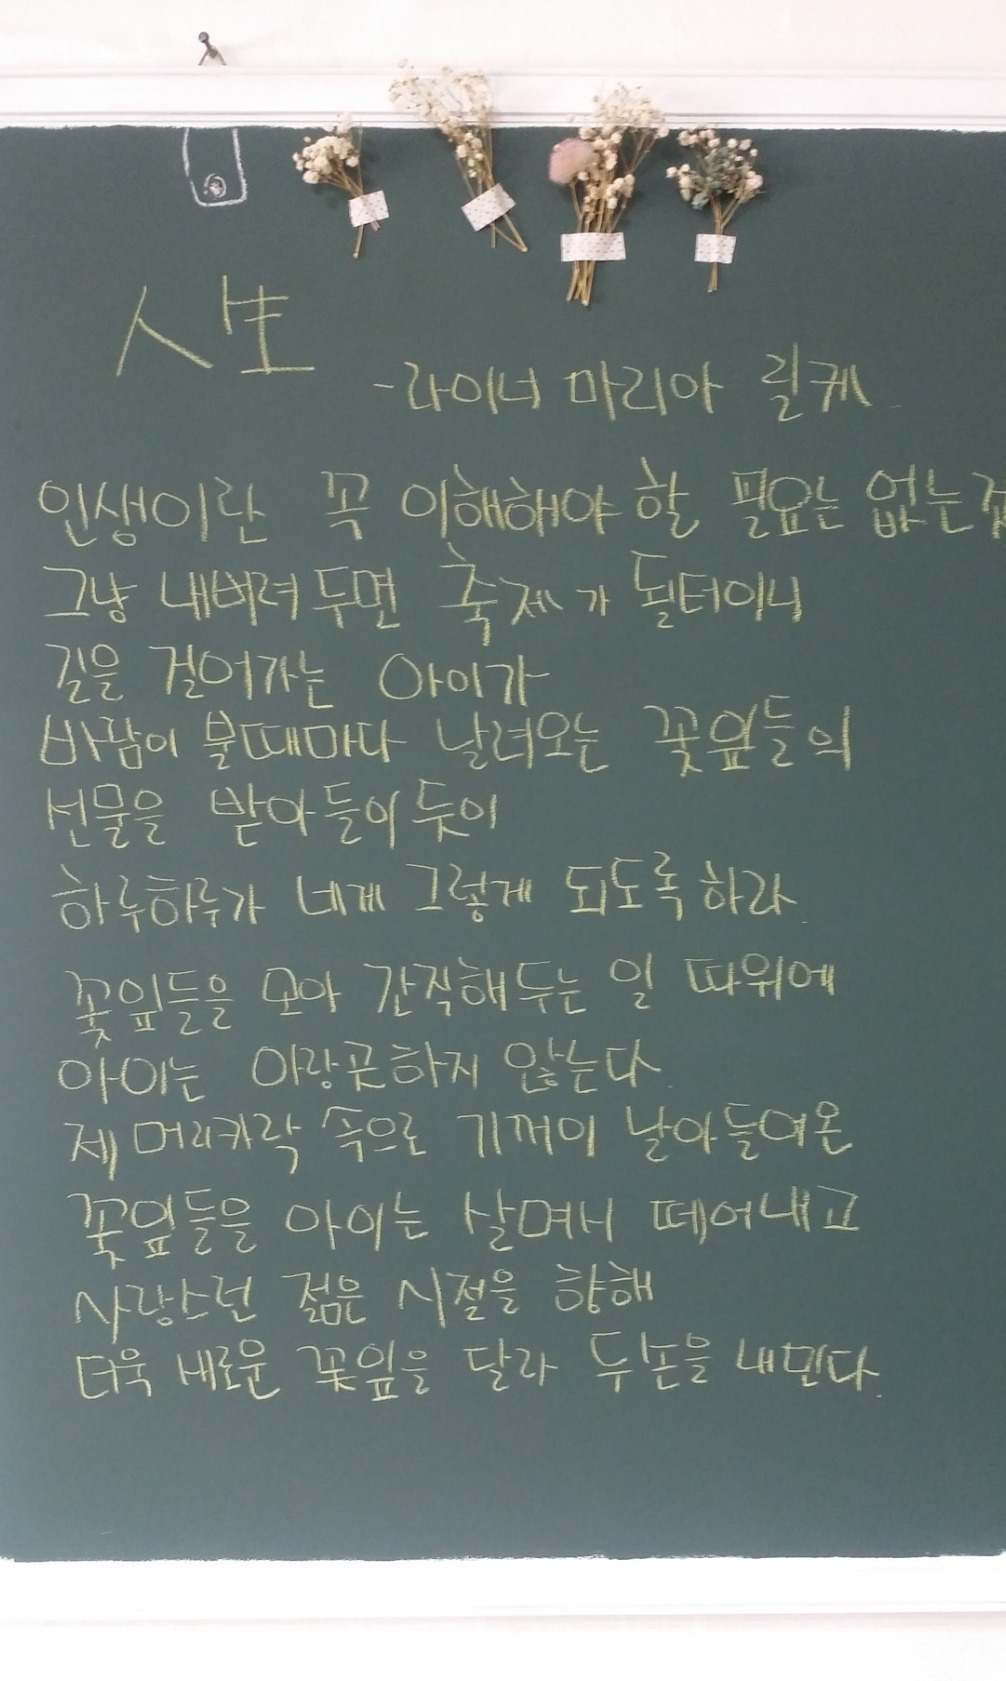 人生
-라이너 마리아 릴케
인생이란 꼭 이해해야 할 필요는 없는
그냥 내버려 두면 축제가 될터이니
길을 걸어가는 아이가
바람이 불때마다 날려오는 꽃잎들의
선물을 받아들이듯이
하루하루가 네게 그렇게 되도록 하라.
꽃잎들을 모아 간직해두는 일 따위에
아이는 아랑곳하지 않는다.
제 머리카락 속으로 기꺼이 날아들여온
꽃잎들을 아이는 살며서 떼어내고
사랑스런 젊은 시절을 향해
더욱 새로운 꽃잎을 달라 두손을 내민다.